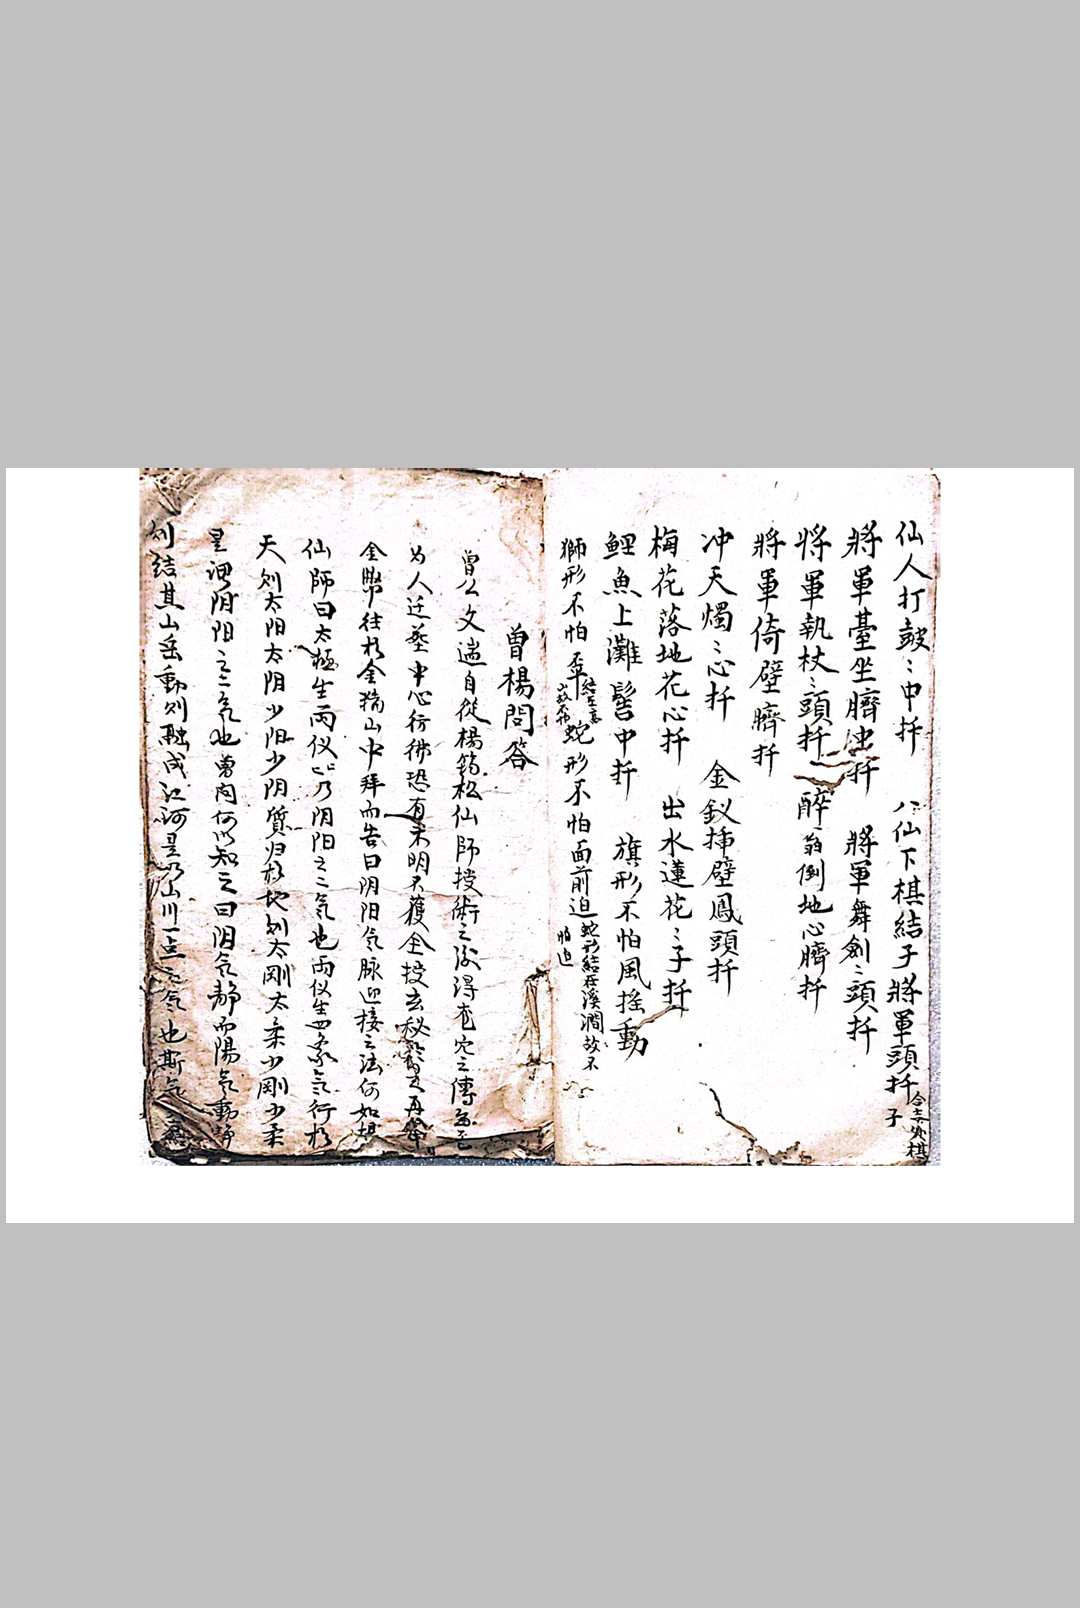 仙人打鼓〻中扦　八仙下棋結子將軍頭扦子
將軍臺坐臍中扦　將軍舞劍〻頭扦
將軍執杖〻頭扦　醉翁倒地心臍扦
將軍倚壁臍扦
冲天燭〻心扦　金釵掛壁鳳頭扦
梅花落地花心扦　出水蓮花〻子扦
鯉魚上灘髻中扦　旗形不怕風搖動
獅形不怕　蛇形不怕面前迫
蛇形結在溪澗故不
怕迫
曾楊問答
曾公文遄自從楊筠松仙師授術之後得　穴之傳
为人迁葬中心彷彿恐有未明不獲全授玄秘　再
金幣往於金　山中拜而告曰阴阳氣脉迎接之法何如
仙師曰太極生两仪〻乃阴阳之二氣也两仪生四象氣行於
天则太阳太阴少阳少阴質归於地则太剛太柔少剛少柔
是謂阴阳之二氣也曾问何以知之曰阴氣静而陽氣動静
则結其山岳動则融成江河是乃山川一点之氣也斯氣